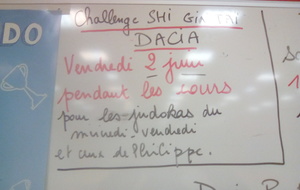 Challenge SHI GIN TAI
DO
DACIA
Vendredi 2 juin
pendant les cours
pour les judokas du
mercredi-vendredi
et ceux de Philippe.